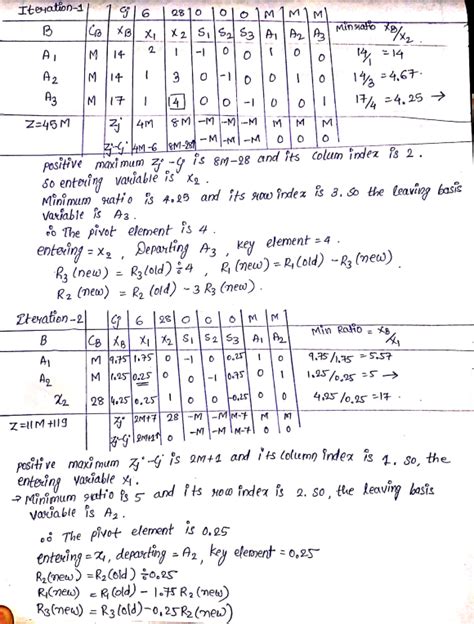 Iteration-1 | Cj | 6 | 28 | 0 | 0 | 0 | M | M | M |
B | CB | XB | X1 | X2 | S1 | S2 | S3 | A1 | A2 | A3 | Min ratio XB/X2
A1 | M | 14 | 2 | 1 | -1 | 0 | 0 | 1 | 0 | 0 | 14/1 = 14
A2 | M | 14 | 1 | 3 | 0 | -1 | 0 | 0 | 1 | 0 | 14/3 = 4.67.
A3 | M | 17 | 1 | 4 | 0 | 0 | -1 | 0 | 0 | 1 | 17/4 = 4.25 →
Z=45M | Zj | 4M | 8M | -M | -M | -M | M | M | M
Zj-Cj | 4M-6 | 8M-28 | -M | -M | -M | 0 | 0 | 0
positive maximum Zj-Cj is 8M-28 and its colum index is 2.
so entering variable is X2.
Minimum ratio is 4.25 and its row index is 3. so the leaving basis
variable is A3.
∴ The pivot element is 4.
entering = X2, Departing A3, key element = 4.
R3 (new) = R3 (old) ÷ 4, R1 (new) = R1 (old) - R3 (new)
R2 (new) = R2 (old) - 3 R3 (new).
Iteration-2 | Cj | 6 | 28 | 0 | 0 | 0 | M | M |
B | CB | XB | X1 | X2 | S1 | S2 | S3 | A1 | A2 | Min Ratio = XB/X1
A1 | M | 9.75 | 1.75 | 0 | -1 | 0 | 0.25 | 1 | 0 | 9.75/1.75 = 5.57
A2 | M | 1.25 | 0.25 | 0 | 0 | -1 | 0.75 | 0 | 1 | 1.25/0.25 = 5 →
X2 | 28 | 4.25 | 0.25 | 1 | 0 | 0 | -0.25 | 0 | 0 | 4.25/0.25 = 17.
Z=11M+119 | Zj | 2M+7 | 28 | -M | -M | M-7 | M | M
Zj-Cj | 2M+1 | 0 | -M | -M | M-7 | 0 | 0
positive maximum Zj-Cj is 2M+1 and its column index is 1. so, the
entering variable X1.
→ Minimum ratio is 5 and its row index is 2. so, the leaving basis
variable is A2.
∴ The pivot element is 0.25
entering = X1, departing = A2, key element = 0.25
R2(new) = R2(old) ÷ 0.25
R1(new) = R1(old) - 1.75 R2(new)
R3(new) = R3(old) - 0.25 R2(new)